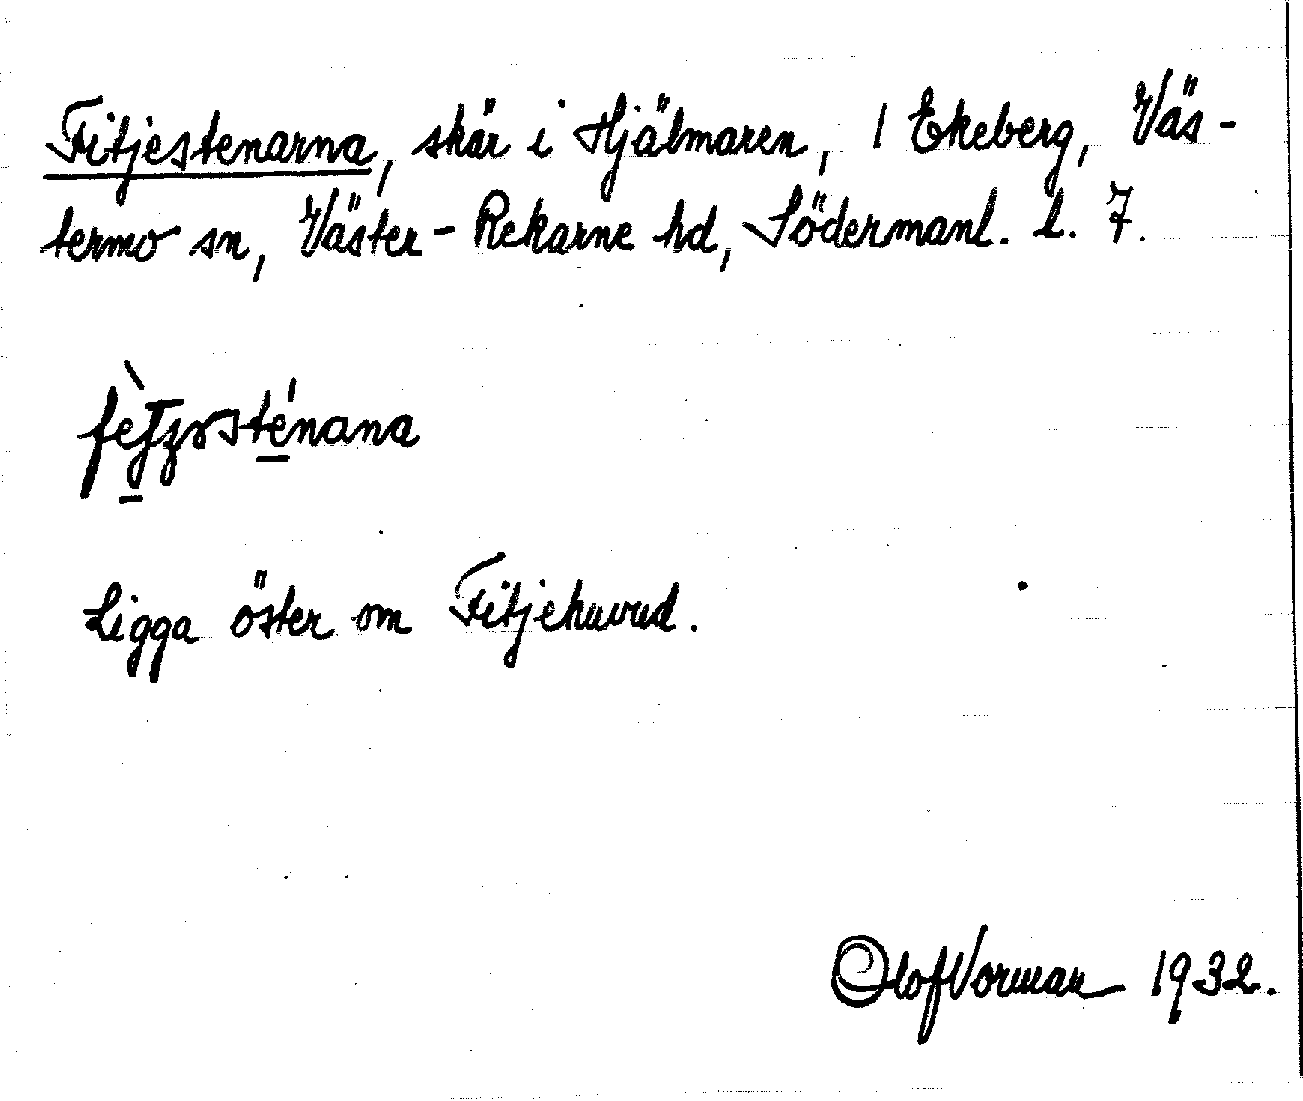 Fitjestenarna, skär i Hjälmaren, / Ekeberg, Väs-
termo sn, Väster-Rekarne hd, Södermanl. l. 7.
Ligga öster om Fitjehuvud.
Olof Vorman 1932.